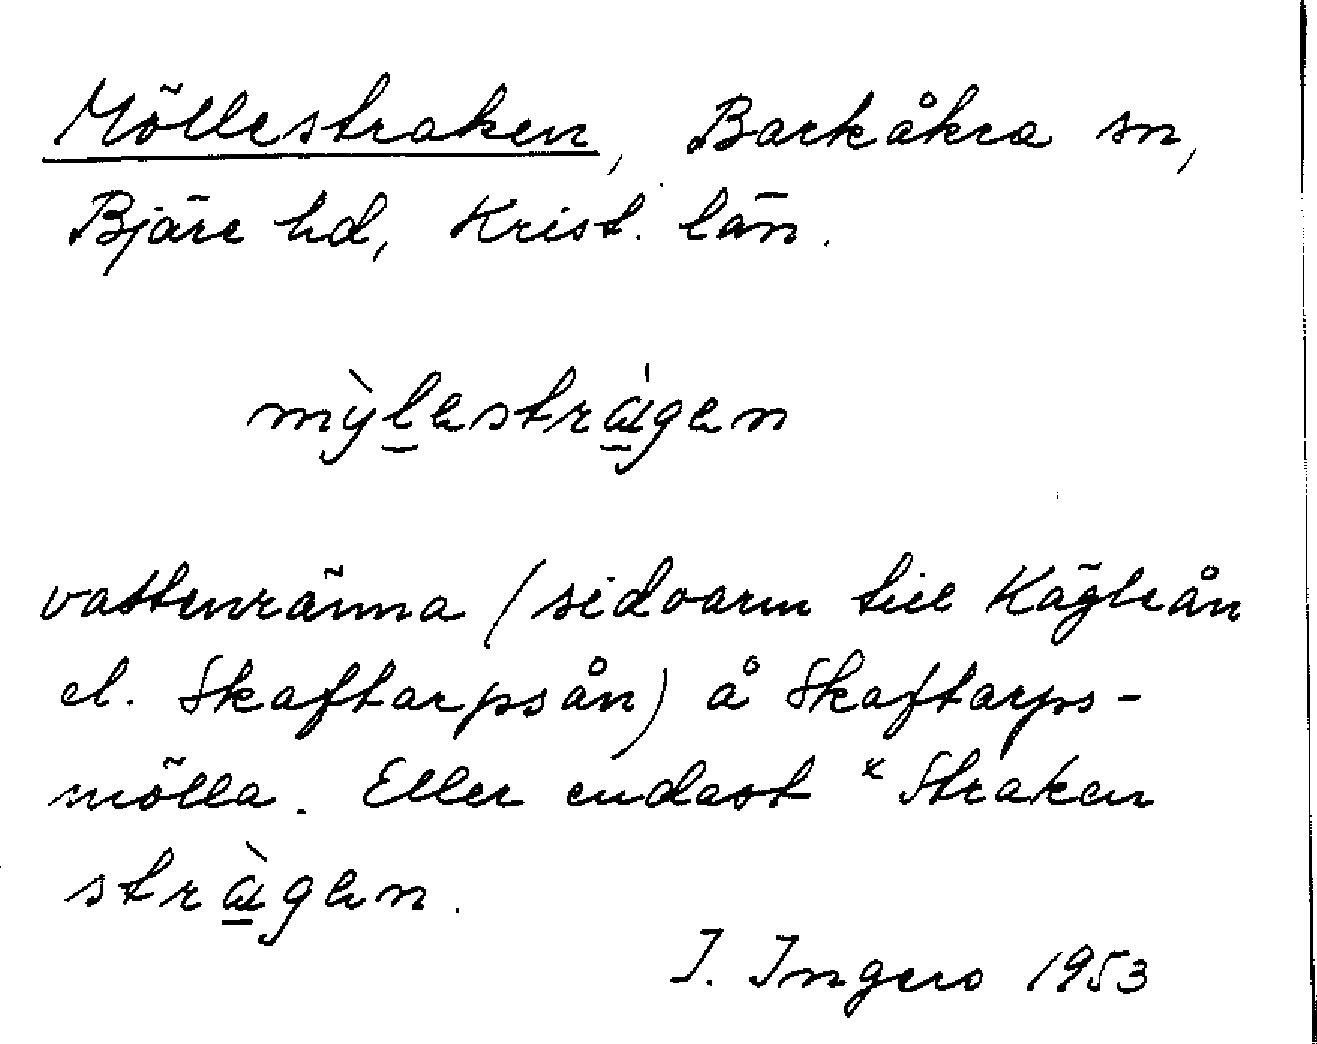 Möllestraken, Barkåkra sn,
Bjäre hd, Krist. län.
mỳlestrágen
vattenränna (sidoarm till Kägleån
el. Skaftarpsån) å Skaftarps-
mölla. Eller endast *Straken
stràgen.
I. Ingers 1953